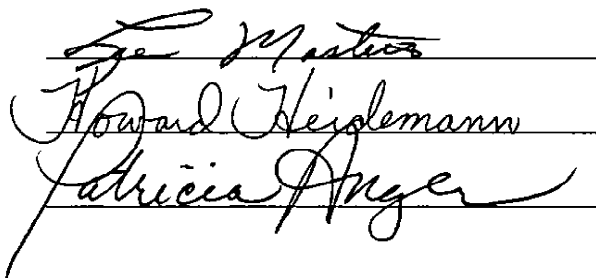 Lee Masters
Howard Heidemann
Patricia Anger